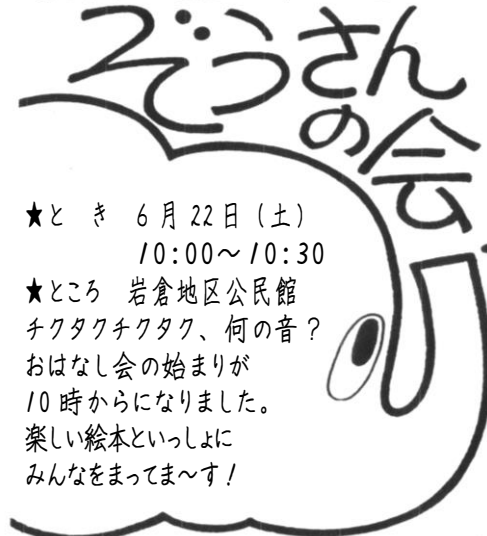 ぞうさん
の会
★と き 6月22日（土）
10:00～10:30
★ところ 岩倉地区公民館
チクタクチクタク、何の音？
おはなし会の始まりが
10時からになりました。
楽しい絵本といっしょに
みんなをまってま～す！